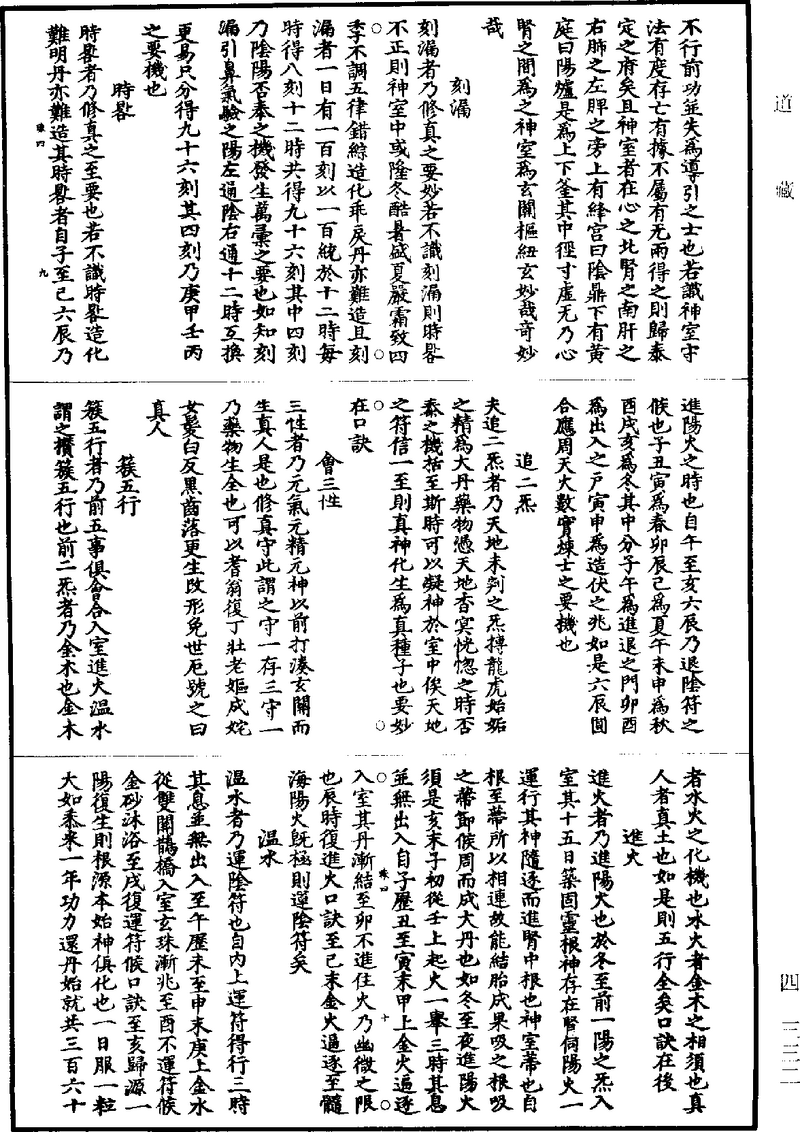 道藏
不行前功並失為導引之士也若識神室守
法有度存亡有據不屬有无兩得之則歸泰
定之府矣且神室者在心之北腎之南肝之
右肺之左脾之旁上有絳宮曰陰鼎下有黃
庭曰陽爐是為上下釜其中徑寸虛无乃心
腎之間為之神室為玄關樞紐玄妙哉奇妙
哉
刻漏
刻漏者乃修真之要妙若不識刻漏則時晷
不正則神室中或隆冬酷暑盛夏嚴霜致四
季不調五律錯綜造化乖戾丹亦難造且刻
漏者一日有一百刻以一百統於十二時每
時得八刻十二時共得九十六刻其中四刻
乃陰陽否泰之機發生萬彙之要也如知刻
漏引鼻氣驗之陽左通陰右通十二時互換
更易只分得九十六刻其四刻乃庚甲壬丙
之要機也
時晷
時晷者乃修真之至要也若不識時晷造化
難明丹亦難造其時晷者自子至巳六辰乃
珠四 九
進陽火之時也自午至亥六辰乃退陰符之
候也子丑寅為春卯辰巳為夏午未申為秋
酉戌亥為冬其中分子午為進退之門卯酉
為出入之戶寅申為造伏之兆如是六辰周
合應周天火數實煉士之要機也
追二炁
夫追二炁者乃天地未判之炁搏龍虎始姤
之精為大丹藥物憑天地杳冥恍惚之時否
泰之機括至斯時可以凝神於室中俟天地
之符信一至則真神化生為真種子也要妙
在口訣
會三性
三性者乃元氣元精元神以前打湊玄關而
生真人是也修真守此謂之守一存三守一
乃藥物生全也可以耆翁復丁壯老嫗成姹
女髮白反黑齒落更生改形免世厄號之曰
真人
簇五行
簇五行者乃前五事俱會合入室進火溫水
謂之攢簇五行也前二炁者乃金木也金木
者水火之化機也水火者金木之相須也真
人者真土也如是則五行全矣口訣在後
進火
進火者乃進陽火也於冬至前一陽之炁入
室其十五日築固靈根神存在腎伺陽火一
運行其神隨逐而進腎中根也神室蔕也自
根至蔕所以相連故能結胎成果吸之根吸
之蔕節候周而成大丹也如冬至夜進陽火
須是亥末子初從壬上起火一舉三時其息
並無出入自子歷丑至寅末甲上金火逼逐
珠四 十
入室其丹漸結至卯不進住火乃幽微之限
也辰時復進火口訣至巳末金火逼逐至髓
海陽火既極則運陰符矣
溫水
溫水者乃運陰符也自丙上運符得行三時
其息並無出入至午歷未至申末庚上金水
從雙關鵲橋入室玄珠漸兆至酉不運符候
金砂沐浴至戌復運符候口訣至亥歸源一
陽復生則根源本始神俱化也一日服一粒
大如黍米一年功力還丹始就共三百六十
四 一三三二